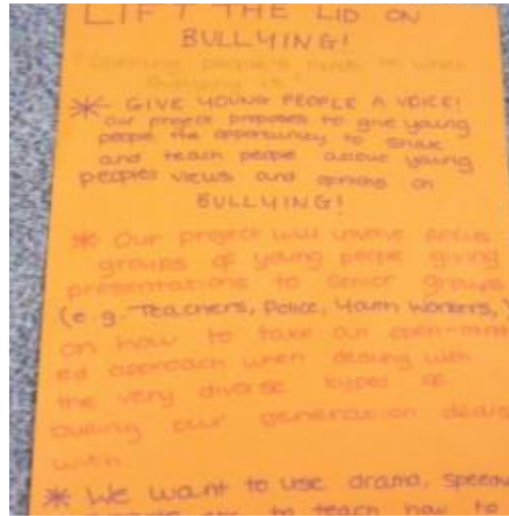 LIFT THE LID ON
BULLYING!
"Opening people's minds to what
Bullying is"
* GIVE YOUNG PEOPLE A VOICE!
Our project proposes to give young
people the opportunity to share
and teach people about young
peoples views and opinions on
BULLYING!
* Our project will involve focus
groups of young people giving
presentations to senior groups
(e.g. Teachers, Police, Youth Workers,)
on how to take an open-mind
ed approach when dealing with
the very diverse types of
bullying our generation deals
with.
* We want to use drama, speech
to teach how to